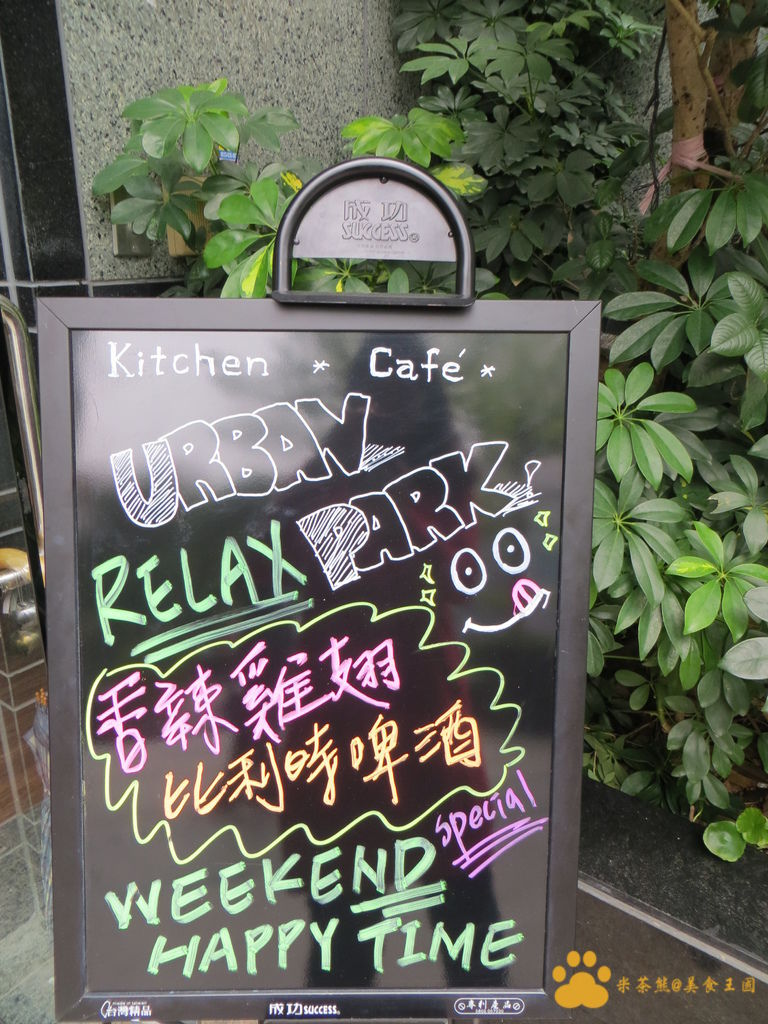 成功
SUCCESS®
Kitchen * Café *
URBAN
PARK!
RELAX
香辣雞翅
比利時啤酒
special
WEEKEND
HAPPY TIME
MADE IN TAIWAN
台灣精品
成功 SUCCESS®
專利產品
米茶熊@美食王國